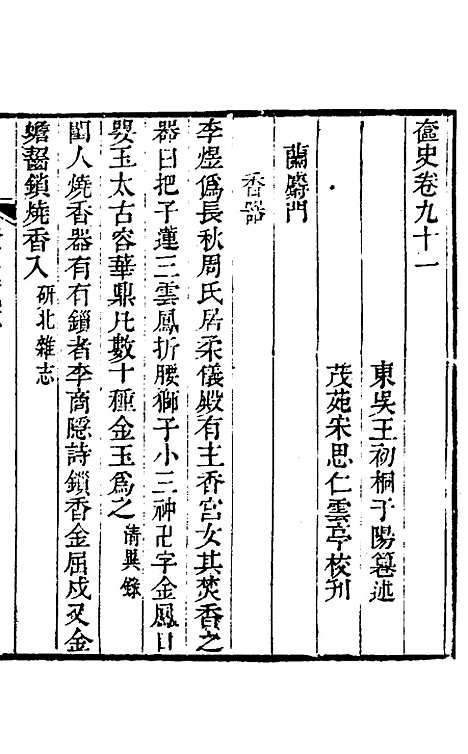 奩史卷九十一
東吳王初桐于陽纂述
茂苑宋思仁雲亭校刋
蘭麝門
香器
李煜僞長秋周氏居柔儀殿有主香宮女其焚香之
器曰把子蓮三雲鳳折腰獅子小三神卍字金鳳口
罌玉太古容華鼎凡數十種金玉爲之 淸異錄
閨人燒香器有有鎖者李商隱詩鎖香金屈戍又金
蟾齧鎖燒香入 硏北雜志